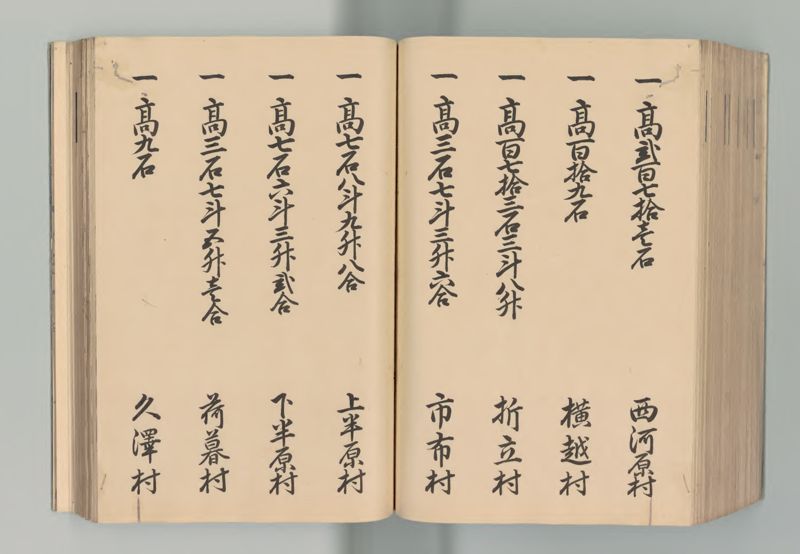 一 髙弐百七拾壱石 西河原村
一 髙百拾九石 横越村
一 髙百七拾三石三斗八升 折立村
一 髙三石七斗三升六合 市布村
一 髙七石八斗九升八合 上半原村
一 髙七石六斗三升弐合 下半原村
一 髙三石七斗五升壱合 荷暮村
一 髙九石 久澤村